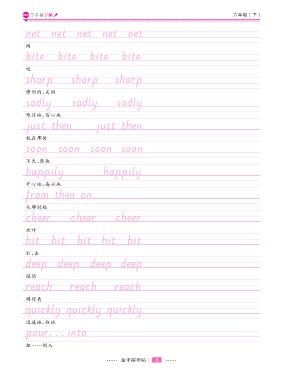 六年级（下）
net net net net net
网
bite bite bite bite
咬
sharp sharp sharp
锋利的;尖的
sadly sadly sadly
难过地,伤心地
just then just then
就在那时
soon soon soon soon
不久,很快
happily happily
开心地,高兴地
from then on
从那时起
cheer cheer cheer
欢呼
hit hit hit hit hit
打,击
deep deep deep deep
深的
reach reach reach
够得着
quickly quickly quickly
迅速地,快地
pour...into
把……倒入